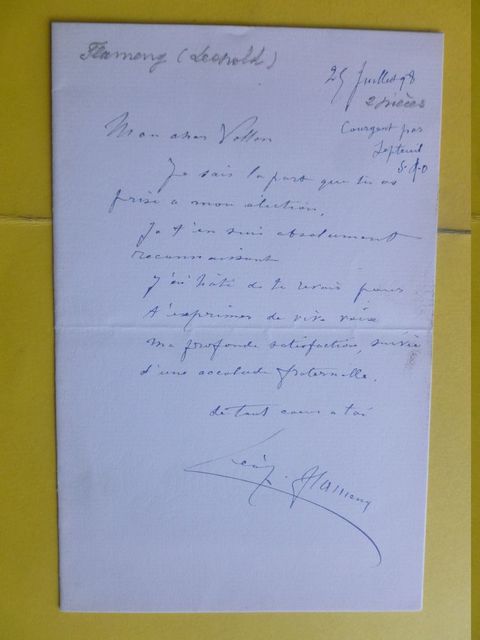 Flameng (Leopold)
25 Juillet 98
2 pièces
Courgent par
Septeuil
S.&O
Mon cher Vollon
Je sais la part que tu as
prise a mon élection,
Je t'en suis absolument
reconnaissant
J'ai hâte de te revoir pour
t'exprimer de vive voix
ma profonde satisfaction, suivie
d'une accolade fraternelle.
de tout coeur a toi
Léop. Flameng